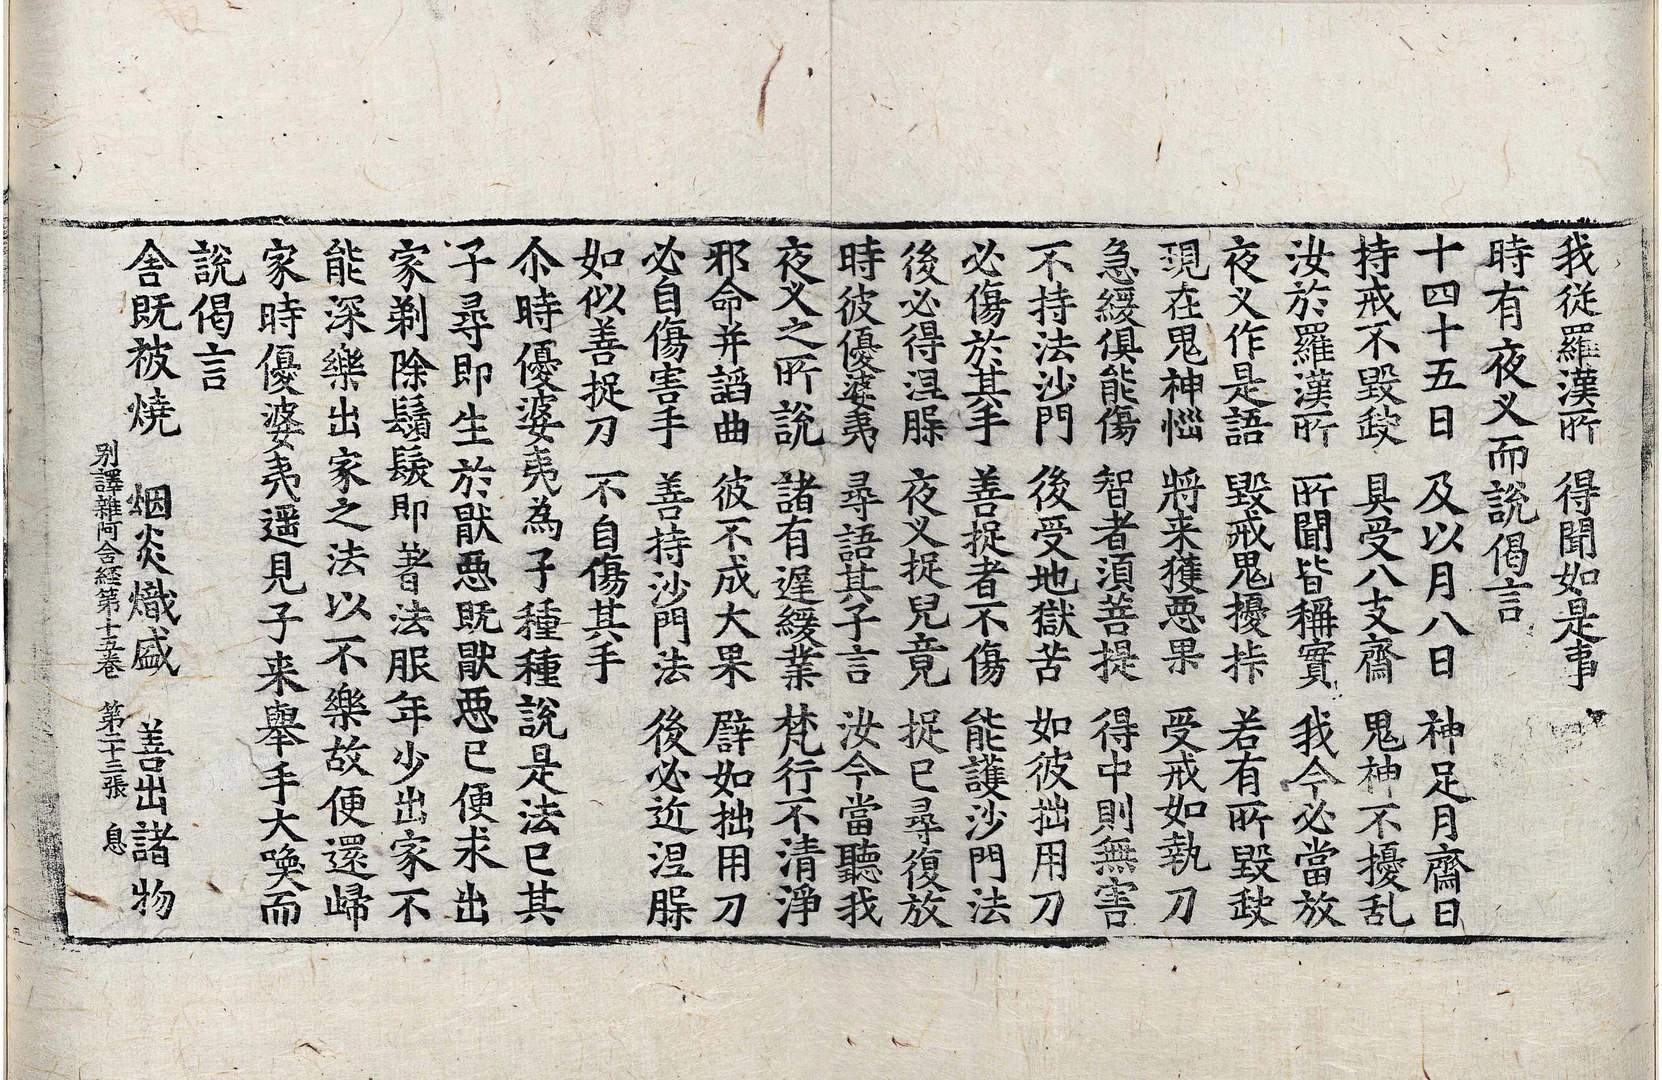 我従羅漢所　得聞如是事
時有夜乂而說偈言
十四十五日　及以月八日　神足月齋日
持戒不毀𡙇　具受八支齋　鬼神不擾乱
汝於羅漢所　所聞皆稱實　我今必當放
夜乂作是語　毀戒鬼擾㧊　若有所毀𡙇
現在鬼神惱　將来獲惡果　受戒如執刀
急緩俱能傷　智者須菩提　得中則無害
不持法沙門　後受地獄苦　如彼拙用刀
必傷於其手　善捉者不傷　能護沙門法
後必得涅槃　夜乂捉兒竟　捉已尋復放
時彼優婆夷　尋語其子言　汝今當聽我
夜乂之所說　諸有遅緩業　梵行不清淨
邪命并謟曲　彼不成大果　譬如拙用刀
必自傷害手　善持沙門法　後必近涅槃
如似善捉刀　不自傷其手
尒時優婆夷為子種種說是法已其
子尋即生於猒惡既猒惡已便求出
家剃除鬚髮即著法服年少出家不
能深樂出家之法以不樂故便還歸
家時優婆夷遥見子来舉手大喚而
說偈言
舍既被燒　烟炎熾盛　善出諸物
別譯雜阿含経第十五巻　第二十三張　息